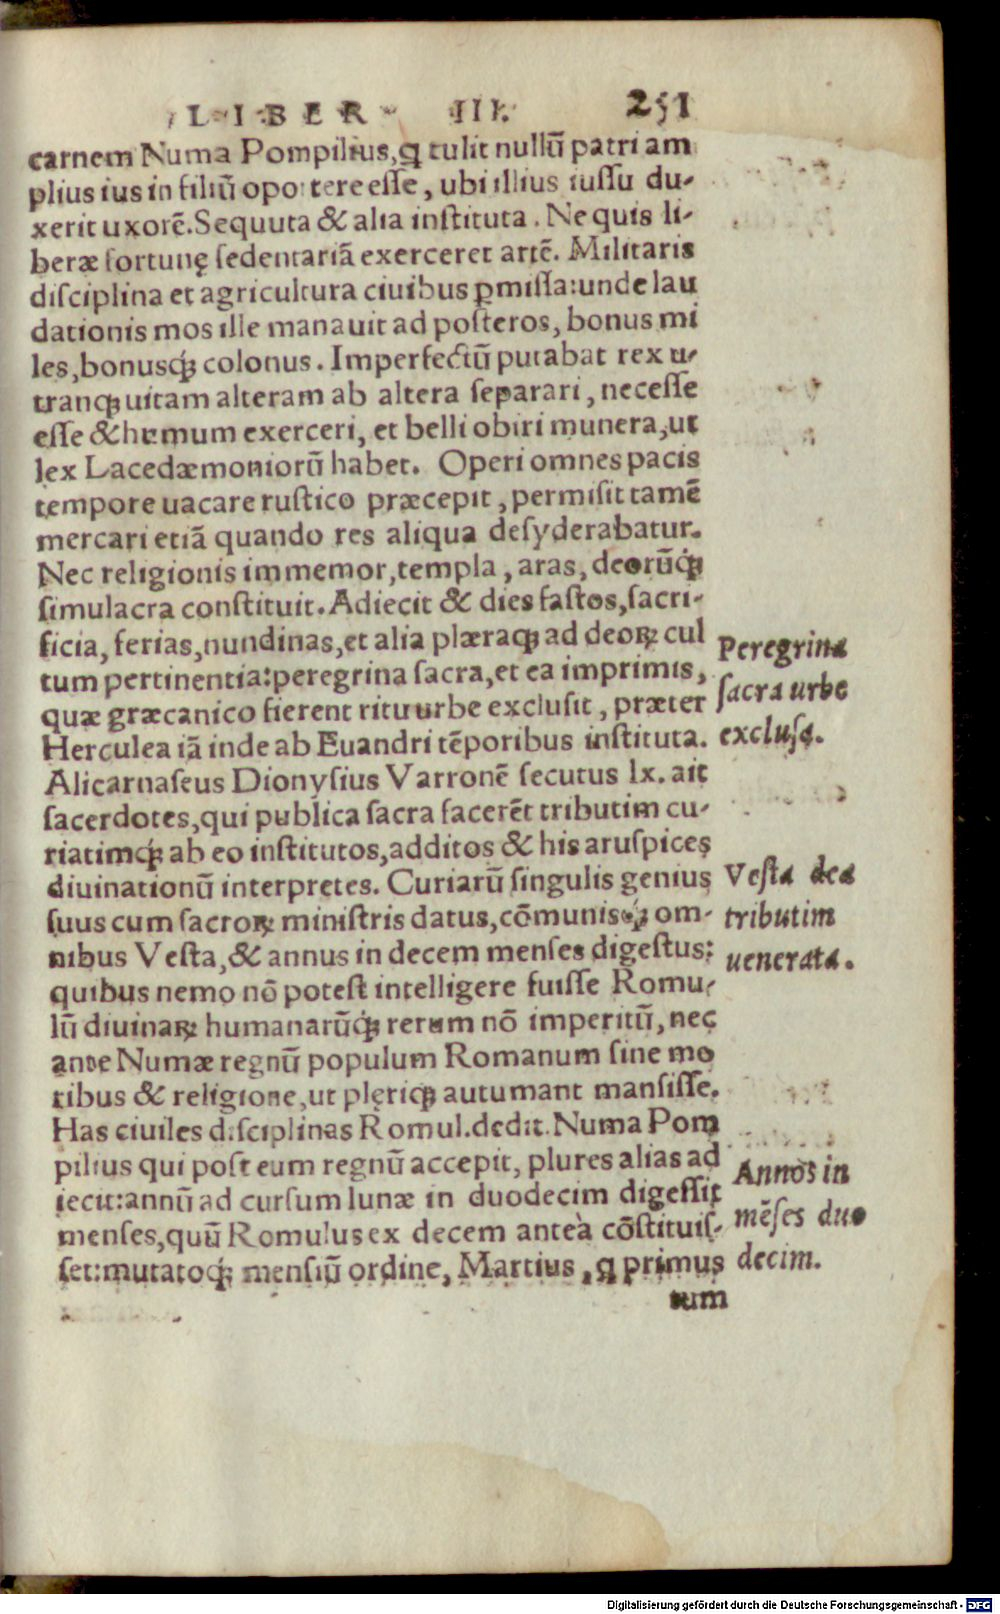 LIBER III. 251
carnem Numa Pompilius, ꝗ tulit nullũ patri am
plius ius in filiũ oportere esse, ubi illius iussu du-
xerit uxorẽ. Sequuta & alia instituta. Ne quis li-
beræ fortunę sedentariã exerceret artẽ. Militaris
disciplina et agricultura ciuibus ꝑmissa: unde lau
dationis mos ille manauit ad posteros, bonus mi
les, bonusq́ꝫ colonus. Imperfectũ putabat rex u-
tranqꝫ uitam alteram ab altera separari, necesse
esse & humum exerceri, et belli obiri munera, ut
lex Lacedæmoniorũ habet. Operi omnes pacis
tempore uacare rustico præcepit, permisit tamẽ
mercari etiã quando res aliqua desyderabatur.
Nec religionis immemor, templa, aras, deorũq́ꝫ
simulacra constituit. Adiecit & dies fastos, sacri-
ficia, ferias, nundinas, et alia plæraqꝫ ad deoꝝ cul
tum pertinentia: peregrina sacra, et ea imprimis,
quæ græcanico fierent ritu urbe exclusit, præter
Herculea iã inde ab Euandri tẽporibus instituta.
Alicarnaseus Dionysius Varronẽ secutus lx. ait
sacerdotes, qui publica sacra facerẽt tributim cu-
riatimq́ꝫ ab eo institutos, additos & his aruspices
diuinationũ interpretes. Curiarũ singulis genius
suus cum sacroꝝ ministris datus, cõmunisq́ꝫ om-
nibus Vesta, & annus in decem menses digestus:
quibus nemo nõ potest intelligere fuisse Romu-
lũ diuinaꝝ humanarũq́ꝫ rerum nõ imperitũ, nec
ante Numæ regnũ populum Romanum sine mo
ribus & religione, ut plęriqꝫ autumant mansisse.
Has ciuiles disciplinas Romul. dedit. Numa Pom
pilius qui post eum regnũ accepit, plures alias ad
iecit: annũ ad cursum lunæ in duodecim digessit
menses, quũ Romulus ex decem anteà cõstituis-
set: mutatoq́ꝫ mensiũ ordine, Martius, ꝗ primus
tum
Peregrina
sacra urbe
exclusa.
Vesta dea
tributim
uenerata.
Annos in
mẽses duo
decim.
Digitalisierung gefördert durch die Deutsche Forschungsgemeinschaft - DFG